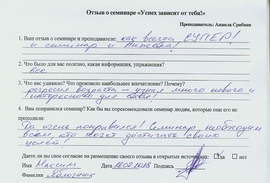 Отзыв о семинаре «Успех зависит от тебя!»
Преподаватель:
1. Ваш отзыв о семинаре и преподавателе: как всегда СУПЕР!
и семинар и Анжела!
2. Что было для вас полезно, какая информация, упражнения?
все.
3. Что вас удивило? Что произвело наибольшее впечатление? Почему?
возраста — узнал много нового и
интересного для себя!
4. Вам понравился семинар? Как бы вы порекомендовали семинар людям, которые еще его не
проходили?
Да очень понравился! Семинар необходим
всем, кто хочет достигать своих
целей!
Даете ли вы свое согласие на размещение своего отзыва в открытых источниках? да нет
Имя Максим Дата
Фамилия